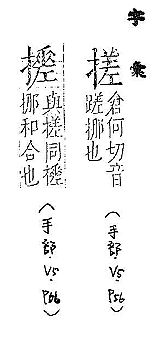 字彙
搓倉何切音
蹉挪也
(手部.V5.P56)
與搓同𢱢
挪和合也
(手部.V5.P66)